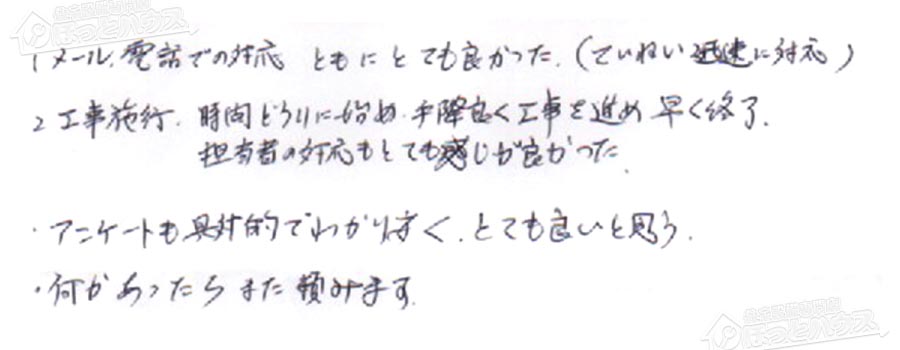 1 メール、電話での対応 ともにとても良かった。(ていねい 迅速に対応)
2 工事施行. 時間どうりに始め. 手降良く工事を進め 早く終了.
担当者の対応もとても感じが良かった.
・アンケートも具対的でわかり安く、とても良いと思う.
・何かあったら また 頼みます.
ほっとハウス
ほっとハウス